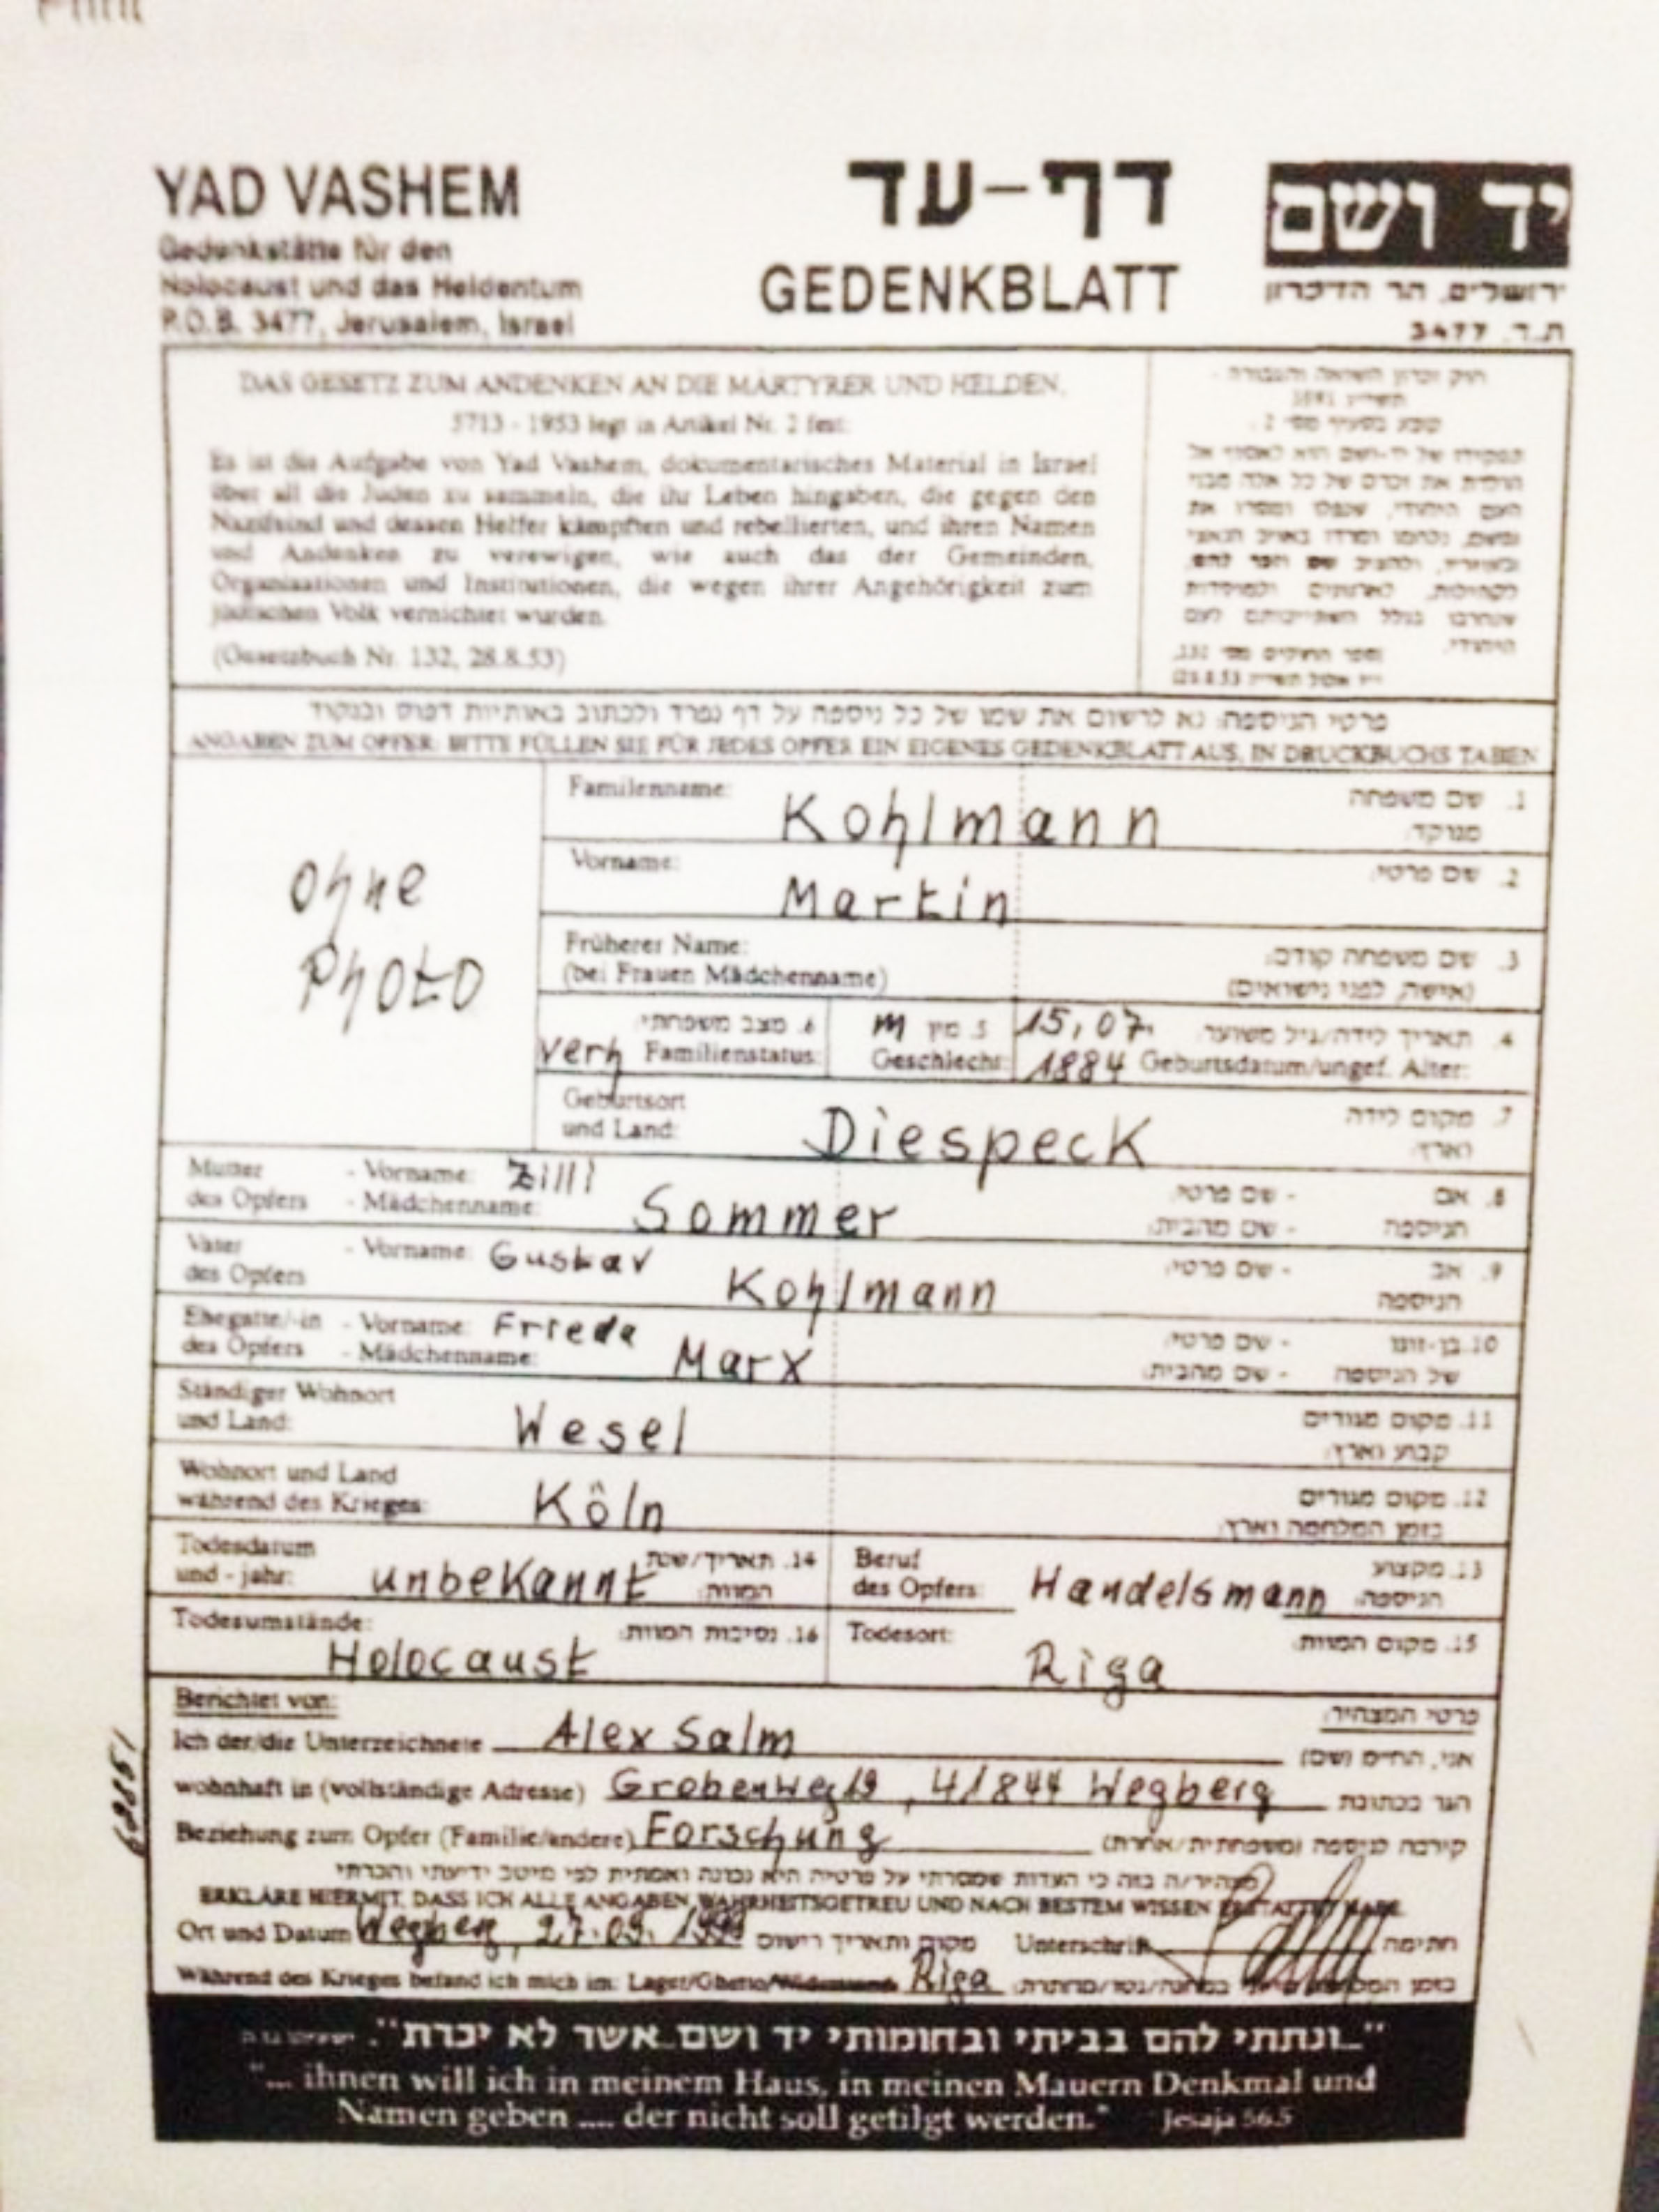 YAD VASHEM
Gedenkstätte für den
Holocaust und das Heldentum
P.O.B. 3477, Jerusalem, Israel
דף-עד
GEDENKBLATT
יד ושם
ירושלים, הר הזיכרון
ת.ד. 3477
DAS GESETZ ZUM ANDENKEN AN DIE MÄRTYRER UND HELDEN,
5713 - 1953 legt in Artikel Nr. 2 fest:
Es ist die Aufgabe von Yad Vashem, dokumentarisches Material in Israel
über all die Juden zu sammeln, die ihr Leben hingaben, die gegen den
Nazifeind und dessen Helfer kämpften und rebellierten, und ihren Namen
und Andenken zu verewigen, wie auch das der Gemeinden,
Organisationen und Institutionen, die wegen ihrer Angehörigkeit zum
jüdischen Volk vernichtet wurden.
(Gesetzbuch Nr. 132, 28.8.53)
חוק זכרון השואה והגבורה -
קובע בסעיף מס' 2:
תפקידו של יד-ושם הוא לאסוף אל
המולדת את זכרם של כל אלה מבני
העם היהודי, שנפלו ומסרו את
נפשם, נלחמו ומרדו באויב הנאצי
ובעוזריו, ולהציב שם וזכר להם,
לקהילות, לארגונים ולמוסדות
שנחרבו בגלל השתייכותם לעם
היהודי.
פרטי הניספה: נא לרשום את שמו של כל ניספה על דף נפרד ולכתוב באותיות דפוס ובנקוד
ANGABEN ZUM OPFER: BITTE FÜLLEN SIE FÜR JEDES OPFER EIN EIGENES GEDENKBLATT AUS, IN DRUCKBUCHS TABEN
ohne
Photo
Familenname: Kohlmann 1. שם משפחה
מנוקד:
Vorname: Martin 2. שם פרטי:
Früherer Name: 3. שם משפחה קודם:
(bei Frauen Mädchenname) (אישה, לפני נישואים)
6. מצב משפחתי: m 5. מין 15.07. 4. תאריך לידה/גיל משוער:
verh Familienstatus: Geschlecht: 1884 Geburtsdatum/ungef. Alter:
Geburtsort
und Land: Diespeck 7. מקום לידה
וארץ:
Mutter - Vorname: Zilli 8. אם - שם פרטי:
des Opfers - Mädchenname: Sommer הניספה - שם מהבית:
Vater - Vorname: Gustav 9. אב - שם פרטי:
des Opfers Kohlmann הניספה
Ehegatte/-in - Vorname: Frieda 10. בן-זוגו - שם פרטי:
des Opfers - Mädchenname: Marx של הניספה - שם מהבית:
Ständiger Wohnort
und Land: Wesel 11. מקום מגורים
קבוע וארץ:
Wohnort und Land
während des Krieges: Köln 12. מקום מגורים
בזמן המלחמה וארץ:
Todesdatum
und - jahr: unbekannt 14. תאריך/שנת
המוות:
Beruf
des Opfers: Handelsmann 13. מקצוע
הניספה:
Todesumstände: Holocaust 16. נסיבות המוות:
Todesort: Riga 15. מקום המוות:
Berichtet von: פרטי המצהיר:
Ich der/die Unterzeichnete Alex Salm אני, החי"מ (שם)
wohnhaft in (vollständige Adresse) Grobenweg 19, 41844 Wegberg הגר בכתובת
Beziehung zum Opfer (Familie/andere) Forschung קירבה לניספה (משפחתית/אחרת)
מצהיר/ה בזה כי העדות שמסרתי על פרטיה היא נכונה ואמתית לפי מיטב ידיעתי והכרתי
ERKLÄRE HIERMIT, DASS ICH ALLE ANGABEN WAHRHEITSGETREU UND NACH BESTEM WISSEN ERSTATTET HABE.
Ort und Datum 27.09. מקום ותאריך רישום Unterschrift Salm חתימה
Während des Krieges befand ich mich im: Lager/Ghetto/ Riga
"...ונתתי להם בביתי ובחומותי יד ושם...אשר לא יכרת".
"... ihnen will ich in meinem Haus, in meinen Mauern Denkmal und
Namen geben .... der nicht soll getilgt werden." Jesaja 56.5